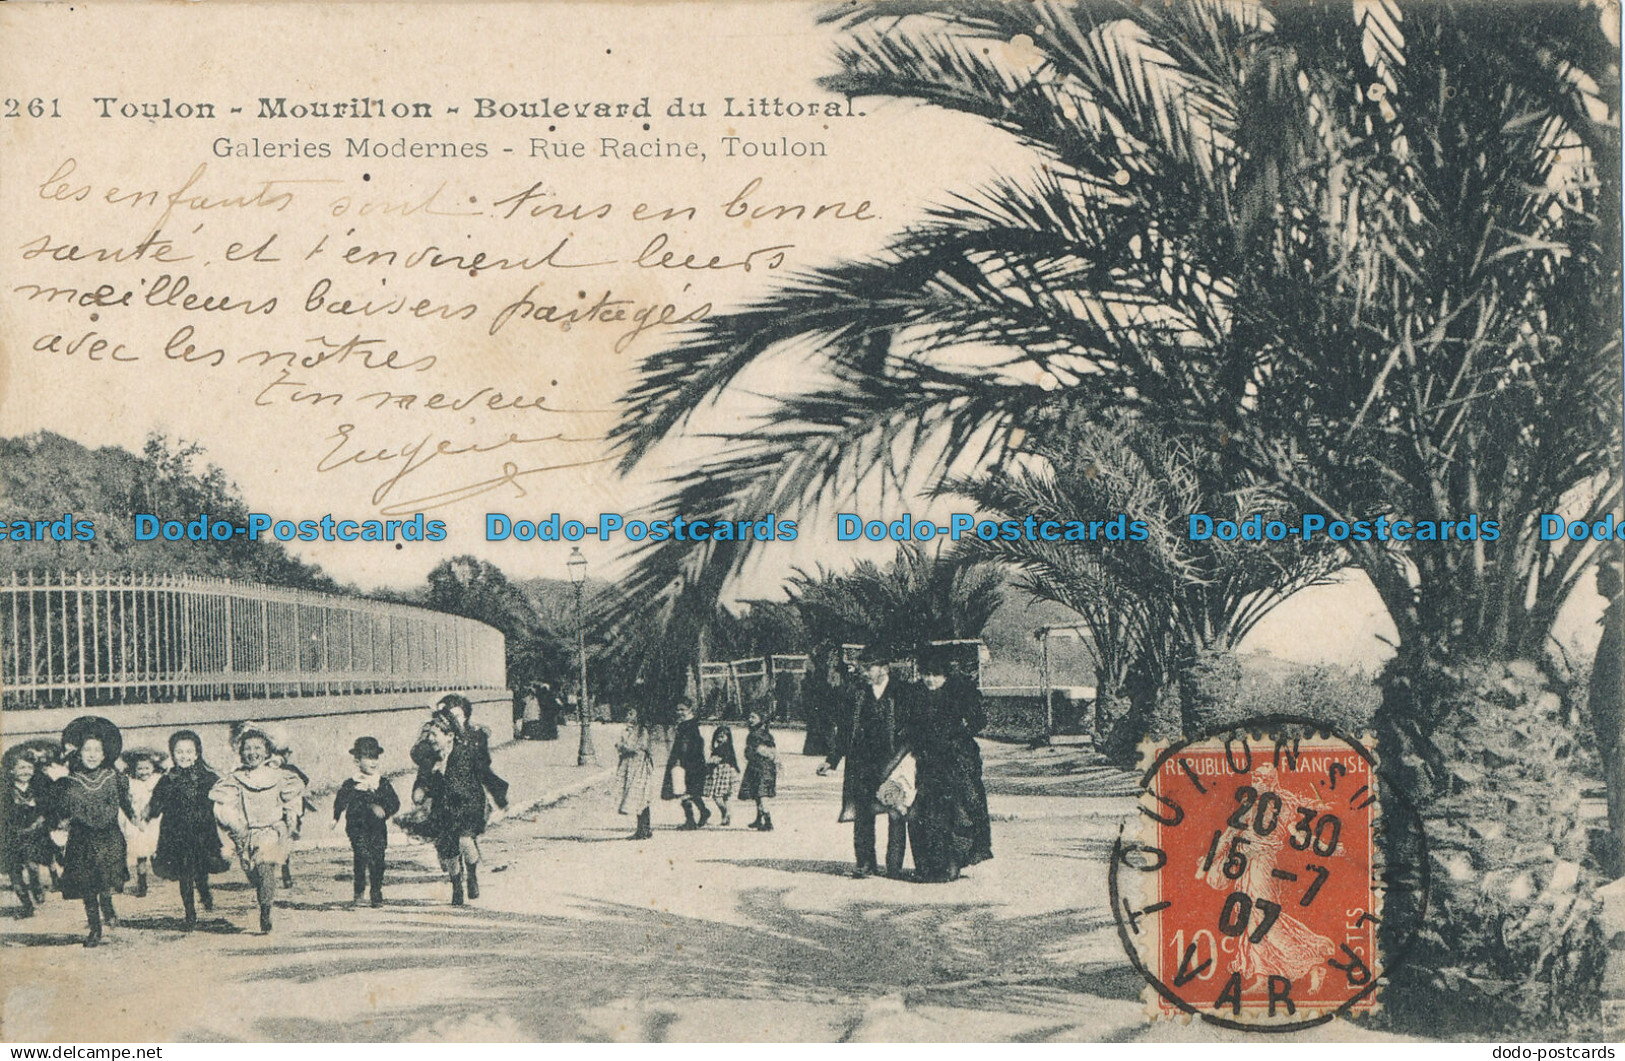 261 Toulon - Mourillon - Boulevard du Littoral.
Galeries Modernes - Rue Racine, Toulon
les enfants sont tous en bonne
santé et t'envoient leurs
meilleurs baisers partagés
avec les nôtres
ton
Eugénie
Dodo-Postcards Dodo-Postcards Dodo-Postcards Dodo-Postcards Dodo
REPUBLIQUE FRANÇAISE
TOULON S. MER
20 30
15 -7
07
10c POSTES
VAR
Dodo-Postcards.com
dodo-postcards